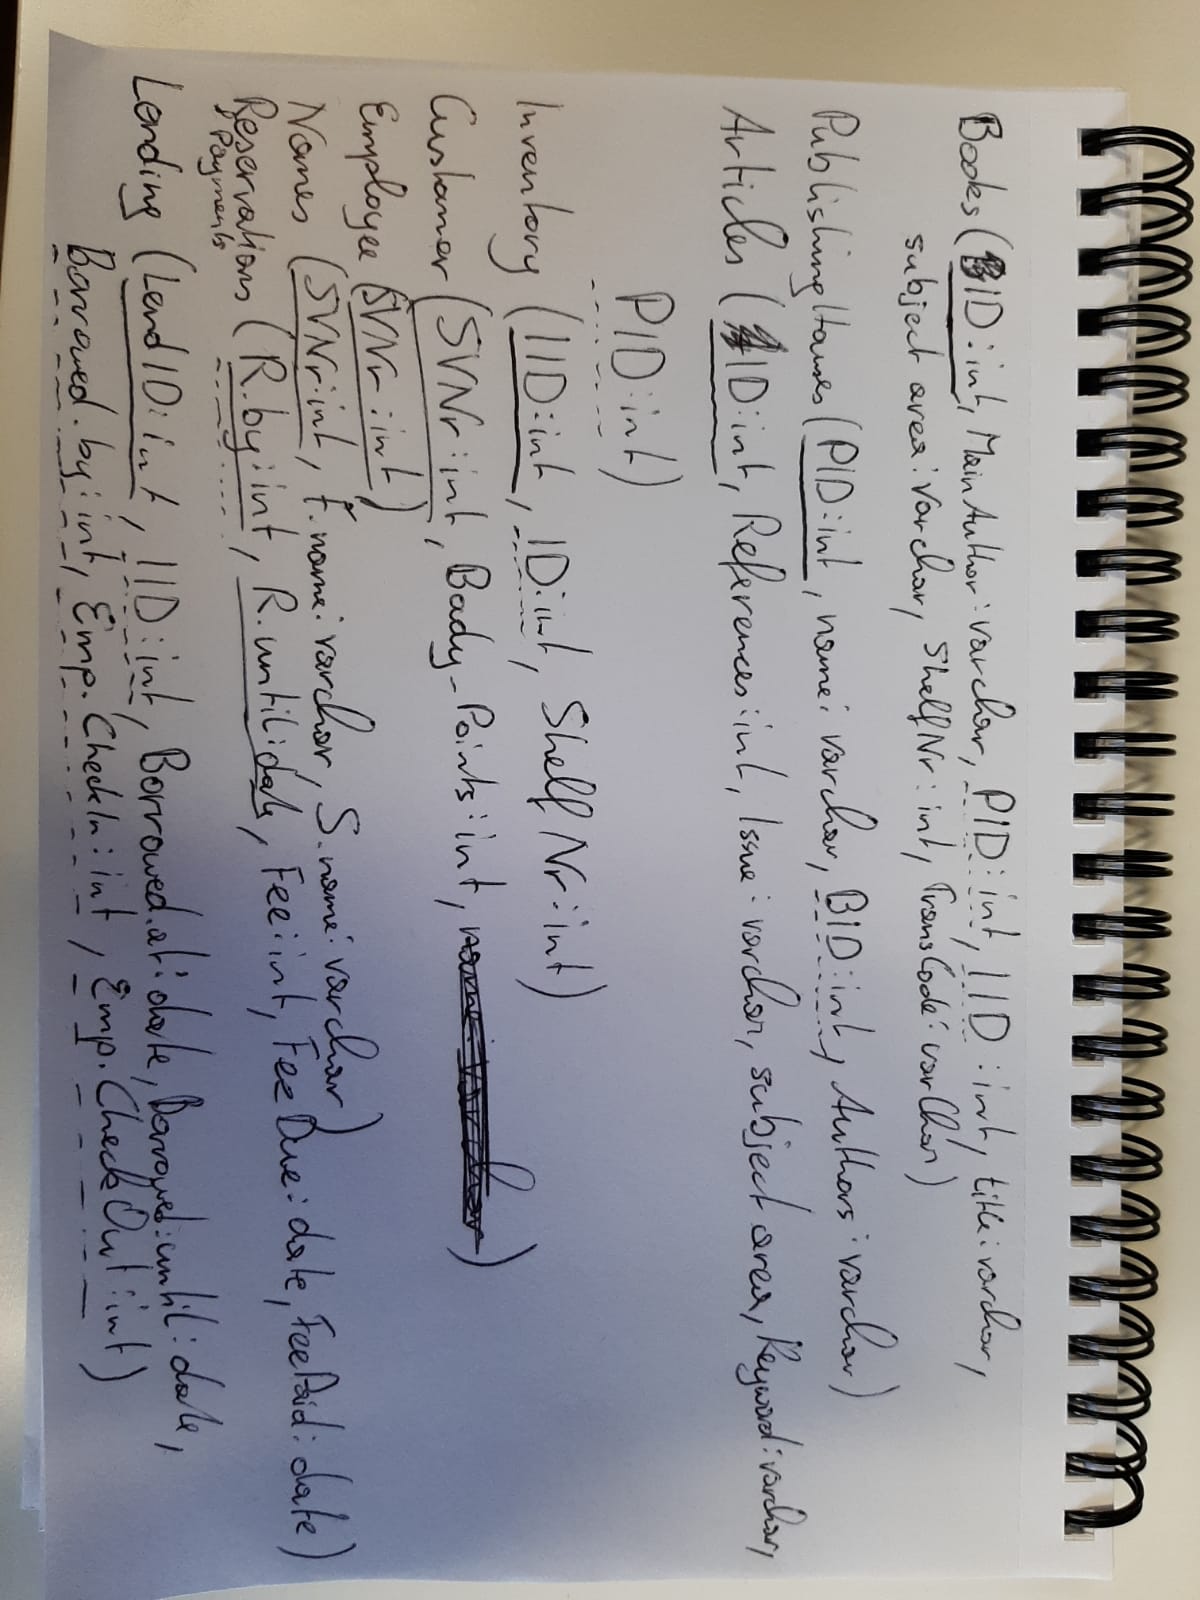 Books (ID:int, MainAuthor:varchar, PID:int, IID:int, title:varchar,
subject area:varchar, ShelfNr:int, TransCode:varChar)
PublishingHouses (PID:int, name:varchar, BID:int, Authors:varchar)
Articles (ID:int, References:int, Issue:varchar, subject area, Keyword:varchar,
PID:int)
Inventory (IID:int, ID:int, ShelfNr:int)
Customer (SVNr:int, Bady-Points:int, )
Employee (SVNr:int)
Names (SVNr:int, f.name:varchar, S.name:varchar)
Reservations (R.by:int, R.until:date, Fee:int, FeeDue:date, FeePaid:date)
Payments
Lending (LendID:int, IID:int, Borrowed.at:date, Borrowed.until:date,
Borrowed.by:int, Emp.CheckIn:int, Emp.CheckOut:int)